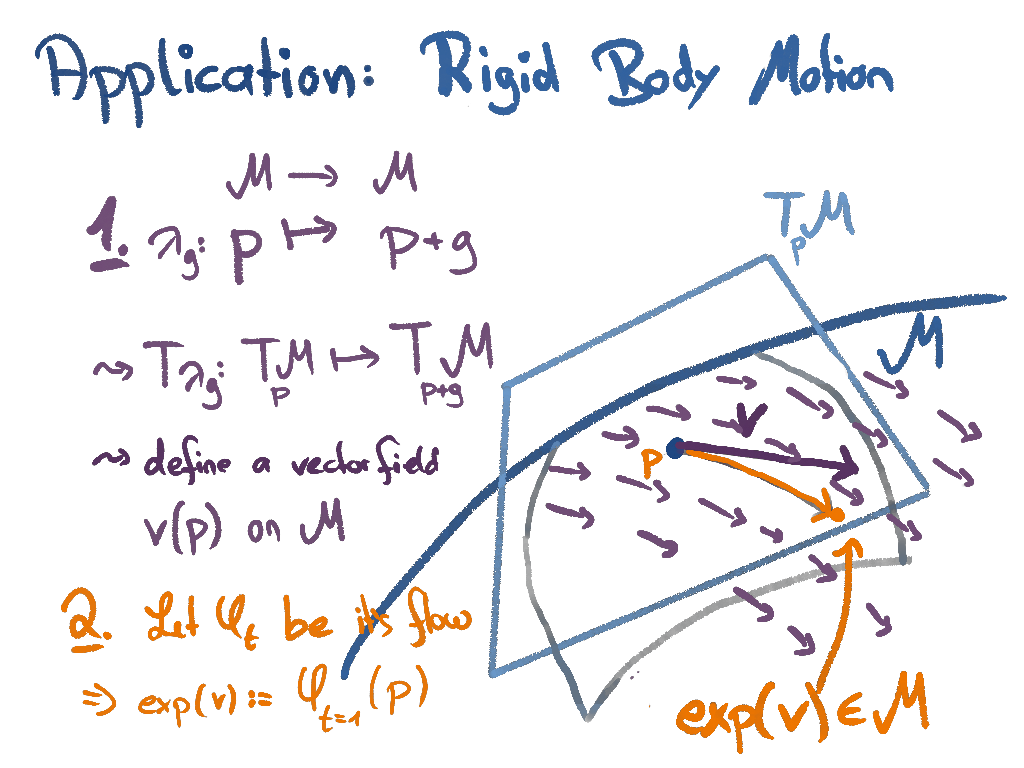 Application: Rigid Body Motion
M → M
1. λg: p ↦ p+g
⇝ Tλg: TpM ↦ Tp+gM
⇝ define a vectorfield
v(p) on M
2. Let φt be its flow
⇒ exp(v) := φt=1 (p)
TpM
M
v
p
exp(v) ∈ M